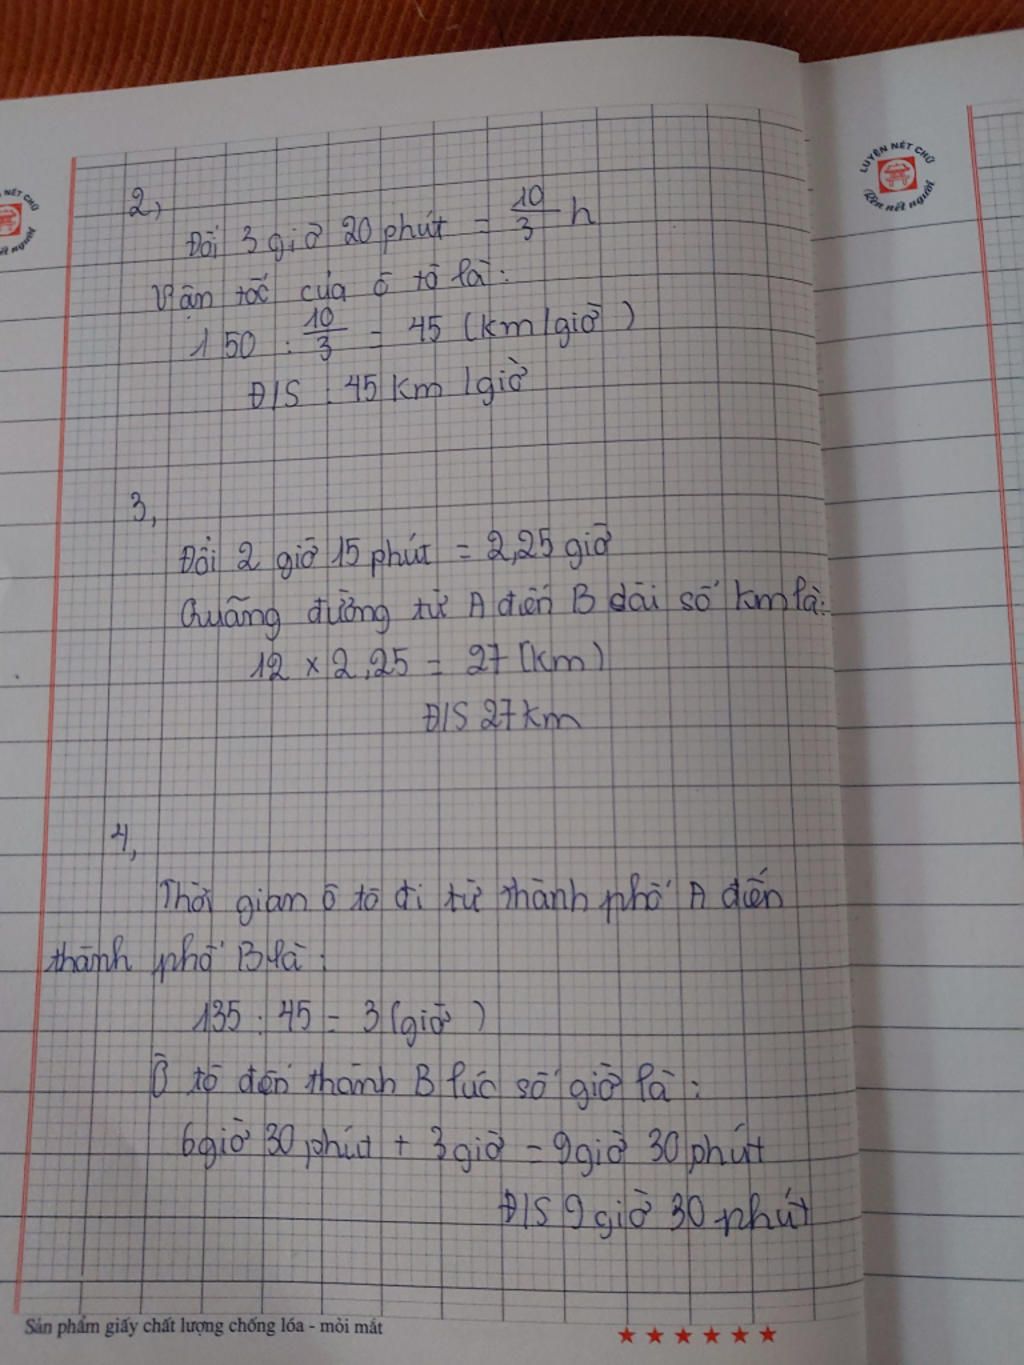 2,
Đổi 3 giờ 20 phút = 10/3 h
Vận tốc của ô tô là:
150 : 10/3 = 45 (km/giờ)
Đ/S : 45 km/giờ
3,
Đổi 2 giờ 15 phút = 2,25 giờ
Quãng đường từ A đến B dài số km là:
12 × 2,25 = 27 (km)
Đ/S 27 km
4,
Thời gian ô tô đi từ thành phố A đến
thành phố B là:
135 : 45 = 3 (giờ)
Ô tô đến thành B lúc số giờ là:
6 giờ 30 phút + 3 giờ = 9 giờ 30 phút
Đ/S 9 giờ 30 phút
Sản phẩm giấy chất lượng chống lóa - mỏi mắt
LUYỆN NÉT CHỮ
Rèn nết người
NÉT CHỮ
nết người